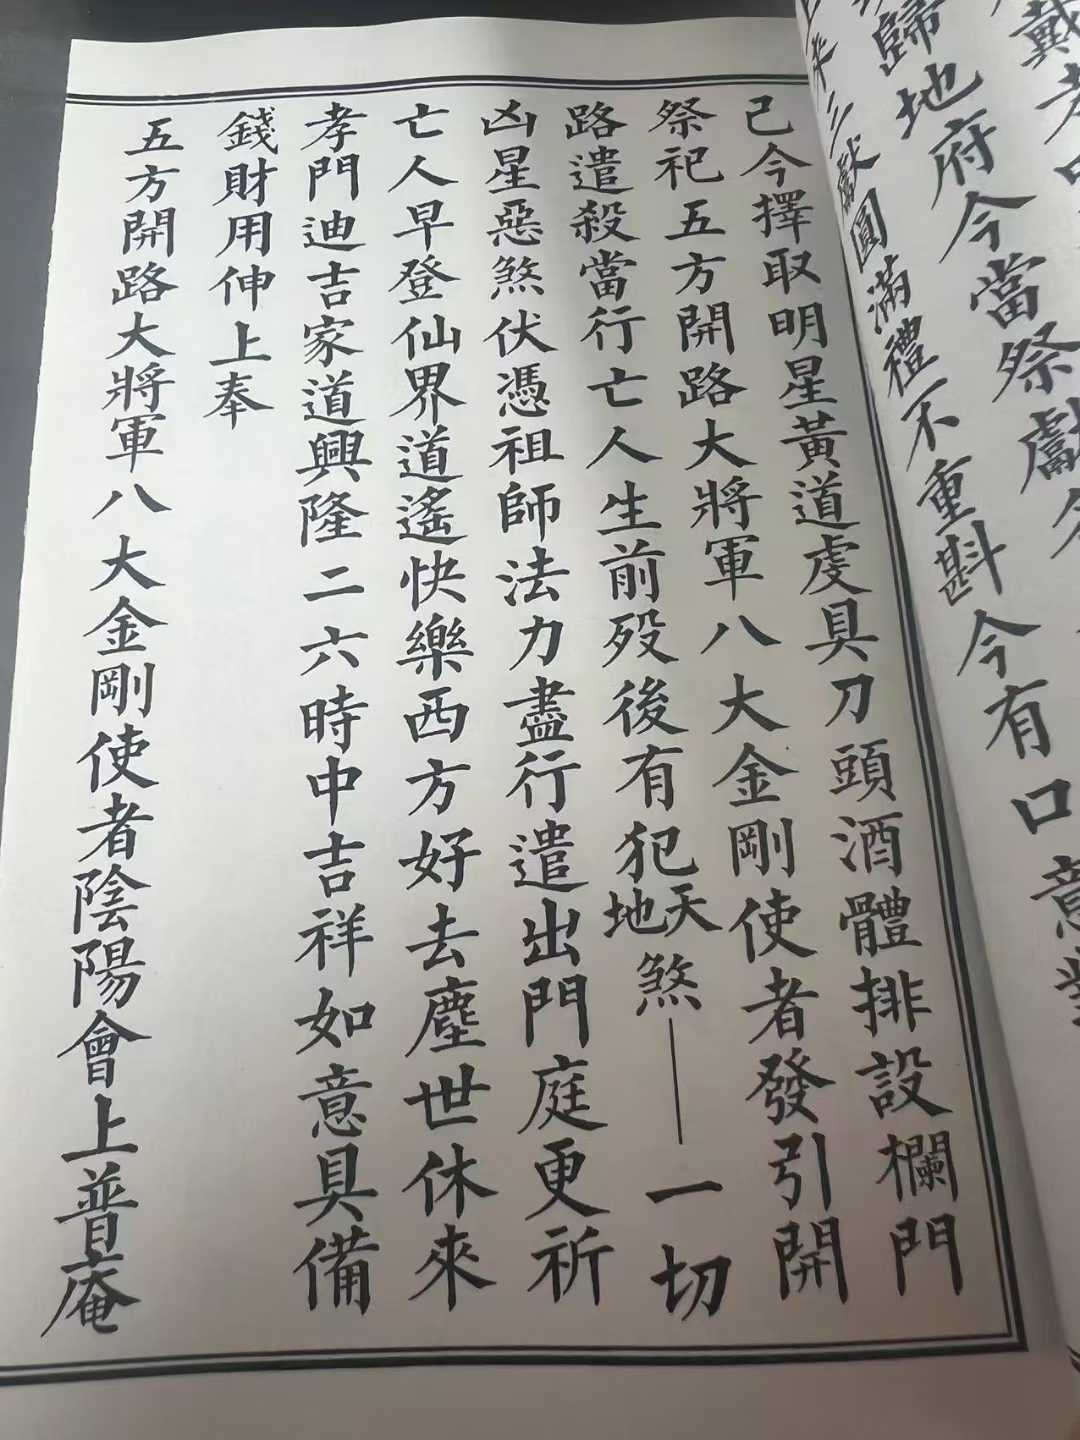 歸地府今當祭獻
三獻圓滿禮不重斟今有口意
己今擇取明星黃道虔具刀頭酒體排設欄門
祭祀五方開路大將軍八大金剛使者發引開
路遣殺當行亡人生前歿後有犯天地煞一切
凶星惡煞伏憑祖師法力盡行遣出門庭更祈
亡人早登仙界道遙快樂西方好去塵世休來
孝門迪吉家道興隆二六時中吉祥如意具備
錢財用伸上奉
五方開路大將軍八大金剛使者陰陽會上普庵